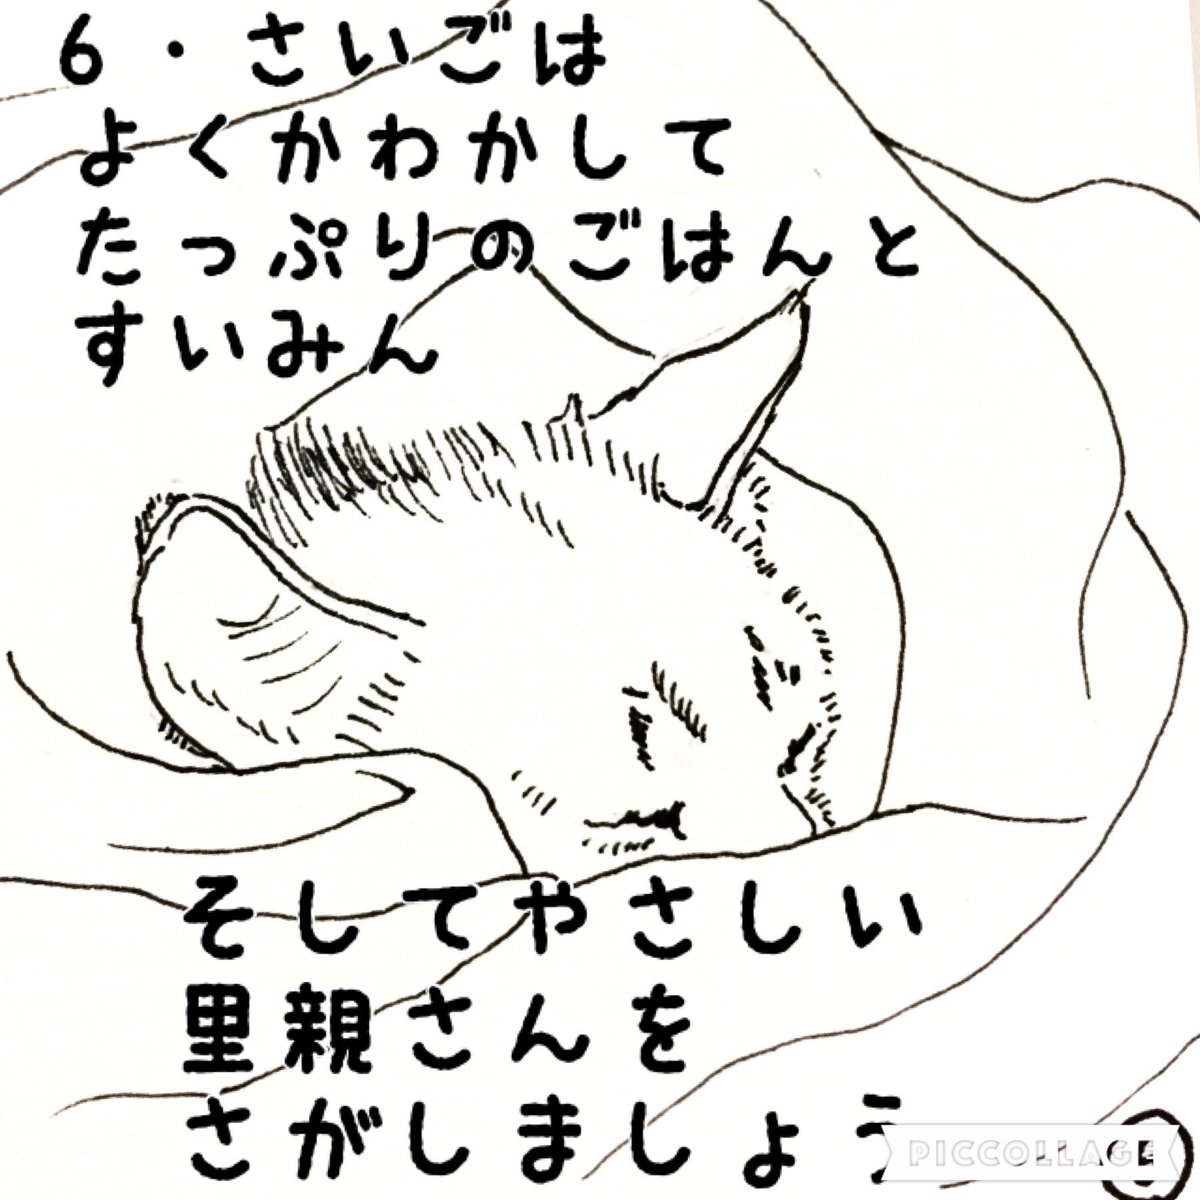 6・さいごは
よくかわかして
たっぷりのごはんと
すいみん
そしてやさしい
里親さんを
さがしましょう
PICCOLLAGE